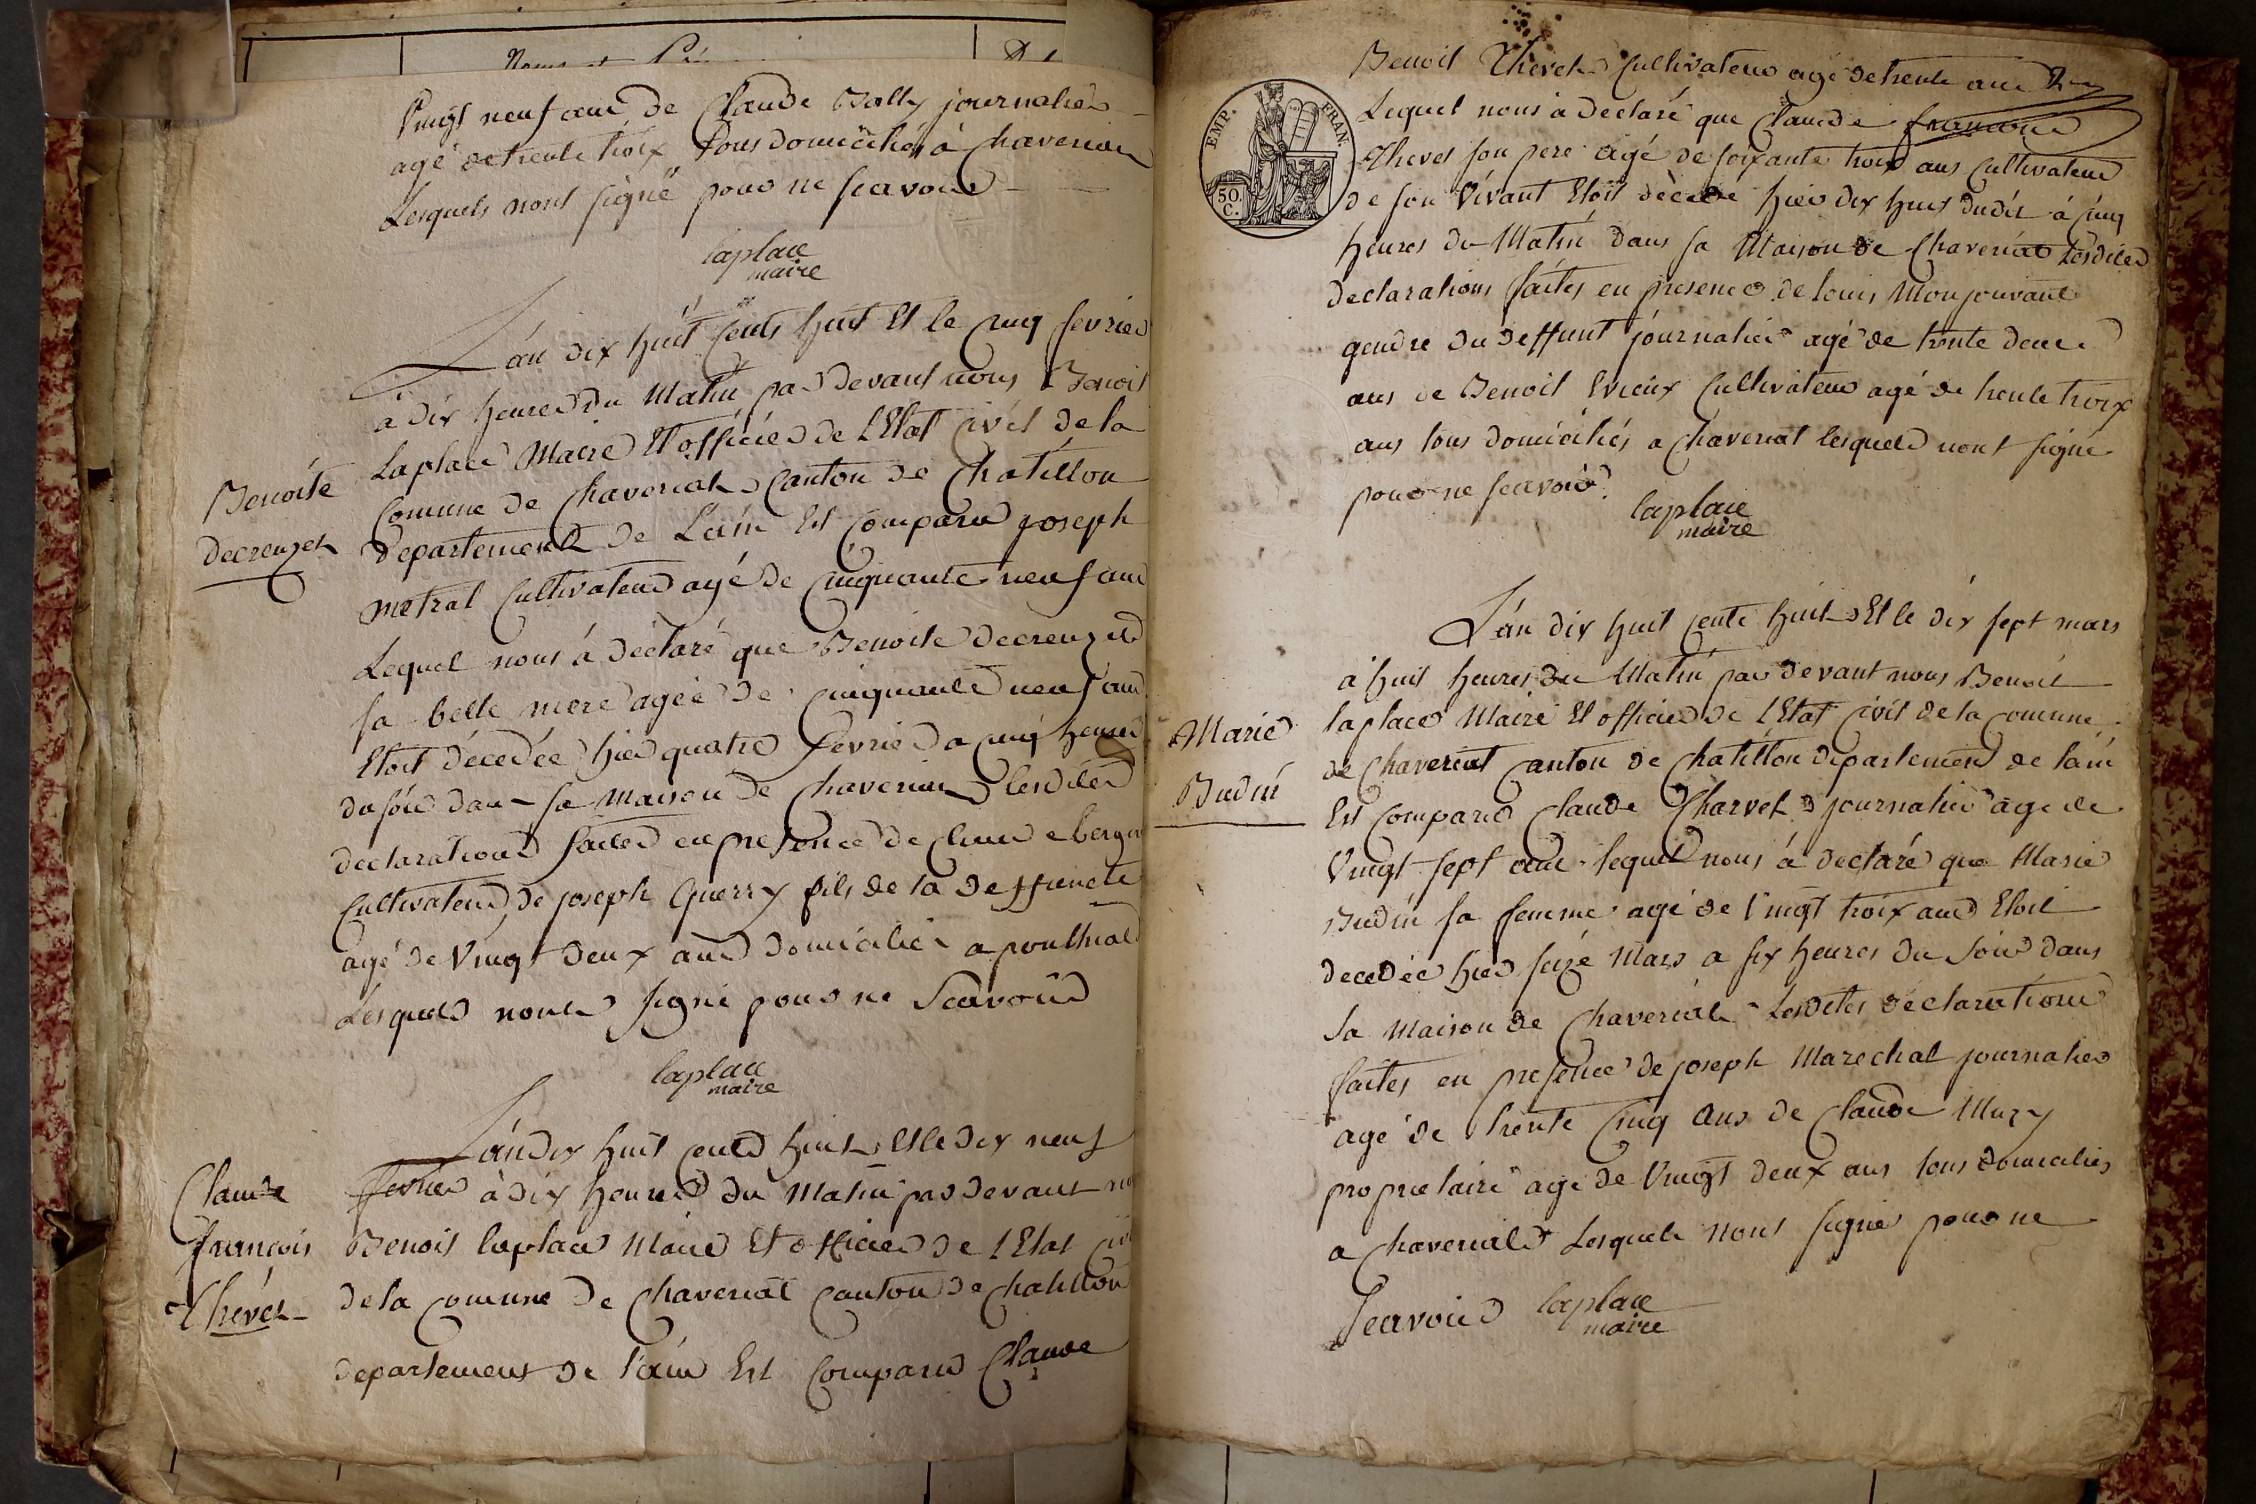 Vingt neuf ans de Claude Bally journalier
agé de trente troix tous domiciliés à Chaveriat
Lesquels nont signé pour ne scavoir
laplace
maire
L'an dix huit cents huit Et le cinq fevrier
à dix heures du Matin par devant nous Benoit
Laplace Maire Et officier de L'Etat Civil de la
Comune de Chaveriat Canton de Chatillon
Departement de L'ain Est Comparu joseph
metral Cultivateur agé de Cinquante neuf ans
Lequel nous à déclaré que Benoite decreuzet
sa belle mere agée de cinquante neuf ans
Etoit décedée hier quatre fevrier a cinq heures
du soir dans sa Maison de Chaveriat lesdites
declarations faites en presence de Claude berger
Cultivateur de joseph Guerry fils de la deffuncte
agé de Vingt deux ans domicilié a
Lesquels nont signé pour ne Scavoir
laplace
maire
Benoite
decreuzet
L'an dix huit cents huit Et le dix neuf
fevrier à dix heures du Matin par devant nous
Benoit laplace Maire Et officier de l'Etat Civil
de la Comune de Chaveriat Canton de Chatillon
departement de l'ain Est Comparu Claude
Claude
françois
Thévet
EMP. FRAN.
50.
C.
Benoit Thevet Cultivateur agé de trente ans
Lequel nous à déclaré que Claude françois
Thevet son pere agé de soixante trois ans Cultivateur
de son Vivant Etoit décedé hier dix huit dudit à Cinq
heures du Matin dans sa Maison de Chaveriat Lesdites
declarations faites en presence de louis Monjouvant
gendre du deffunt journalier agé de trente deux
ans de Benoit Evieux Cultivateur agé de trente troix
ans tous domiciliés a Chaveriat lesquels nont signé
pour ne scavoir
laplace
maire
L'an dix huit cents huit Et le dix sept mars
à huit heures du Matin par devant nous Benoit
laplace Maire Et officier de L'Etat Civil de la Comune
de Chaveriat Canton de Chatillon departement de lain
Est Comparu Claude Charvet journalier agé de
Vingt sept ans lequel nous à déclaré que Marie
Budin sa femme agé de Vingt troix ans Etoit
decedée hier seize Mars a six heures du Soir dans
Sa Maison de Chaveriat Lesdites déclarations
faites en presence de joseph Marechal journalier
agé de trente Cinq Ans de Claude Mury
proprietaire agé de Vingt deux ans tous domiciliés
a Chaveriat Lesquels nont signé pour ne
Scavoir laplace
maire
Marie
Budin